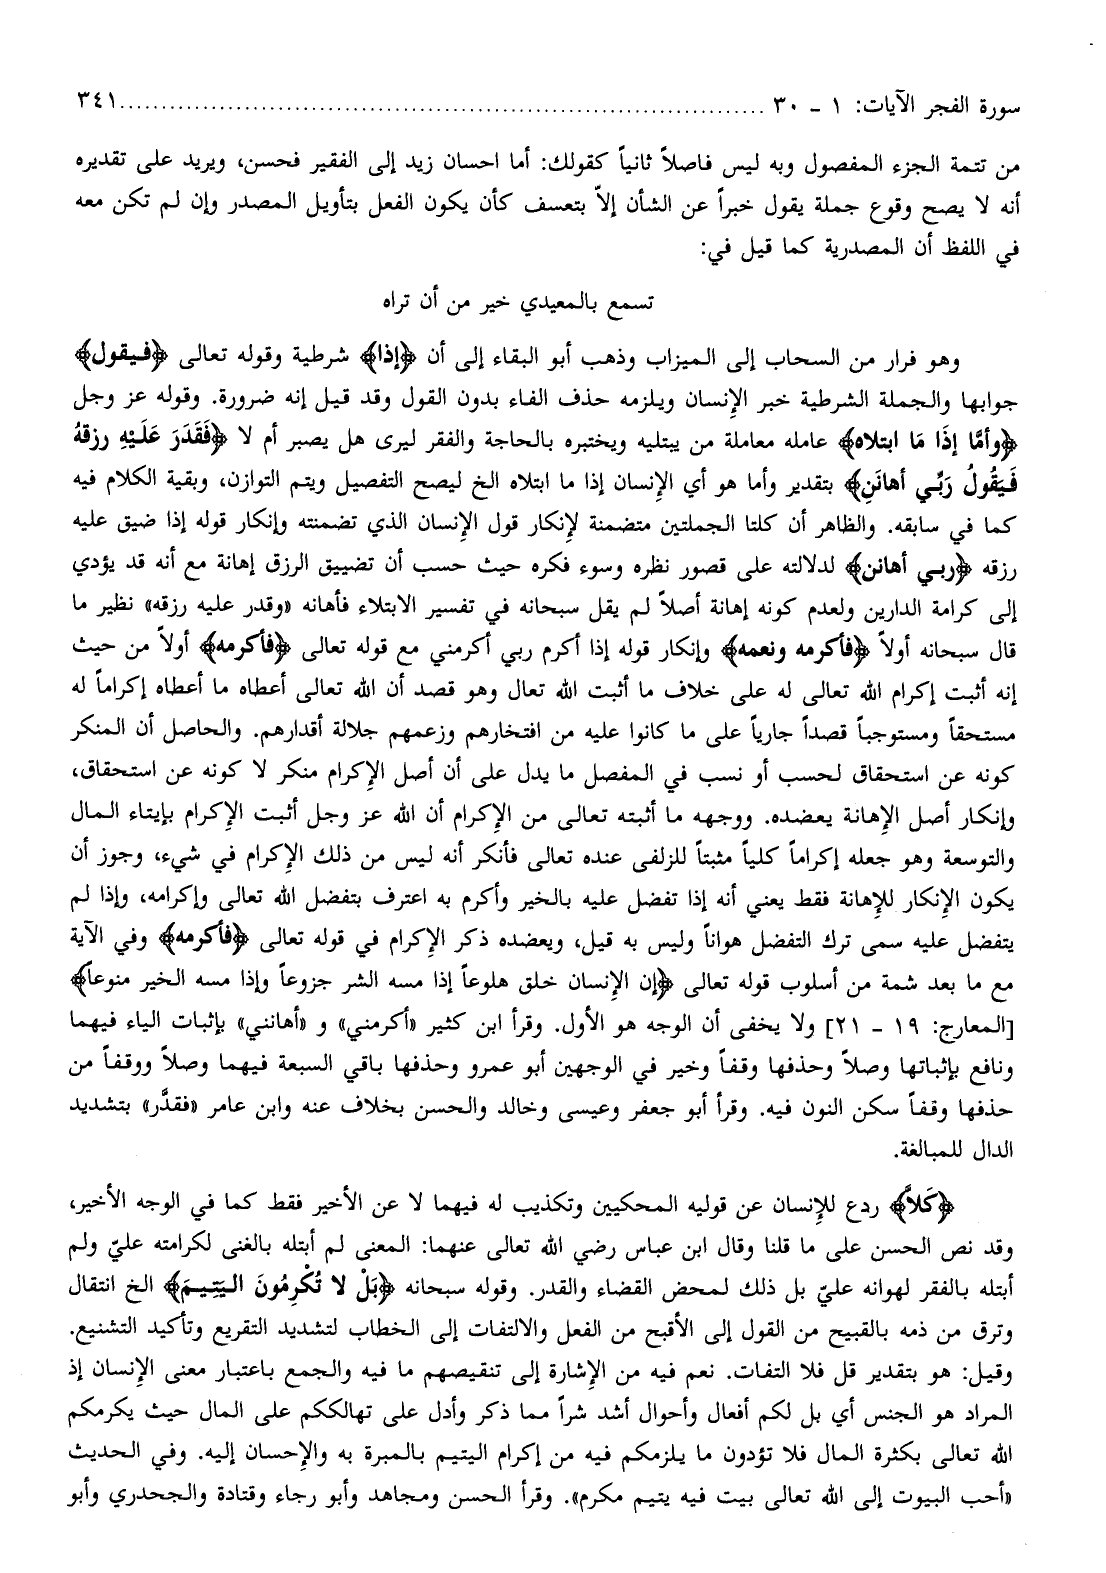 سورة الفجر الآيات: ١ - ٣٠ ............................................................ ٣٤١
من تتمة الجزء المفصول وبه ليس فاصلاً ثانياً كقولك: أما احسان زيد إلى الفقير فحسن، ويريد على تقديره
أنه لا يصح وقوع جملة يقول خبراً عن الشأن إلاّ بتعسف كأن يكون الفعل بتأويل المصدر وإن لم تكن معه
في اللفظ أن المصدرية كما قيل في:
تسمع بالمعيدي خير من أن تراه
وهو فرار من السحاب إلى الميزاب وذهب أبو البقاء إلى أن ﴿إذا﴾ شرطية وقوله تعالى ﴿فيقول﴾
جوابها والجملة الشرطية خبر الإنسان ويلزمه حذف الفاء بدون القول وقد قيل إنه ضرورة. وقوله عز وجل
﴿وأمَّا إذَا مَا ابتلاه﴾ عامله معاملة من يبتليه ويختبره بالحاجة والفقر ليرى هل يصبر أم لا ﴿فَقَدَرَ عَلَيْهِ رزقهُ
فَيَقُولُ رَبِّي أهانَنِ﴾ بتقدير وأما هو أي الإنسان إذا ما ابتلاه الخ ليصح التفصيل ويتم التوازن، وبقية الكلام فيه
كما في سابقه. والظاهر أن كلتا الجملتين متضمنة لإنكار قول الإنسان الذي تضمنته وإنكار قوله إذا ضيق عليه
رزقه ﴿ربي أهانن﴾ لدلالته على قصور نظره وسوء فكره حيث حسب أن تضييق الرزق إهانة مع أنه قد يؤدي
إلى كرامة الدارين ولعدم كونه إهانة أصلاً لم يقل سبحانه في تفسير الابتلاء فأهانه «وقدر عليه رزقه» نظير ما
قال سبحانه أولاً ﴿فأكرمه ونعمه﴾ وإنكار قوله إذا أكرم ربي أكرمني مع قوله تعالى ﴿فأكرمه﴾ أولاً من حيث
إنه أثبت إكرام الله تعالى له على خلاف ما أثبت الله تعال وهو قصد أن الله تعالى أعطاه ما أعطاه إكراماً له
مستحقاً ومستوجباً قصداً جارياً على ما كانوا عليه من افتخارهم وزعمهم جلالة أقدارهم. والحاصل أن المنكر
كونه عن استحقاق لحسب أو نسب في المفصل ما يدل على أن أصل الإكرام منكر لا كونه عن استحقاق،
وإنكار أصل الإهانة يعضده. ووجهه ما أثبته تعالى من الإكرام أن الله عز وجل أثبت الإكرام بإيتاء المال
والتوسعة وهو جعله إكراماً كلياً مثبتاً للزلفى عنده تعالى فأنكر أنه ليس من ذلك الإكرام في شيء، وجوز أن
يكون الإنكار للإهانة فقط يعني أنه إذا تفضل عليه بالخير وأكرم به اعترف بتفضل الله تعالى وإكرامه، وإذا لم
يتفضل عليه سمى ترك التفضل هواناً وليس به قيل، ويعضده ذكر الإكرام في قوله تعالى ﴿فأكرمه﴾ وفي الآية
مع ما بعد شمة من أسلوب قوله تعالى ﴿إن الإنسان خلق هلوعاً إذا مسه الشر جزوعاً وإذا مسه الخير منوعاً﴾
[المعارج: ١٩ - ٢١] ولا يخفى أن الوجه هو الأول. وقرأ ابن كثير «أكرمني» و «أهانني» بإثبات الياء فيهما
ونافع بإثباتها وصلاً وحذفها وقفاً وخير في الوجهين أبو عمرو وحذفها باقي السبعة فيهما وصلاً ووقفاً من
حذفها وقفاً سكن النون فيه. وقرأ أبو جعفر وعيسى وخالد والحسن بخلاف عنه وابن عامر «فقدَّر» بتشديد
الدال للمبالغة.
﴿كَلاَّ﴾ ردع للإنسان عن قوليه المحكيين وتكذيب له فيهما لا عن الأخير فقط كما في الوجه الأخير،
وقد نص الحسن على ما قلنا وقال ابن عباس رضي الله تعالى عنهما: المعنى لم أبتله بالغنى لكرامته عليّ ولم
أبتله بالفقر لهوانه عليّ بل ذلك لمحض القضاء والقدر. وقوله سبحانه ﴿بَلْ لا تُكْرِمُونَ اليَتِيمَ﴾ الخ انتقال
وترق من ذمه بالقبيح من القول إلى الأقبح من الفعل والالتفات إلى الخطاب لتشديد التقريع وتأكيد التشنيع.
وقيل: هو بتقدير قل فلا التفات. نعم فيه من الإشارة إلى تنقيصهم ما فيه والجمع باعتبار معنى الإنسان إذ
المراد هو الجنس أي بل لكم أفعال وأحوال أشد شراً مما ذكر وأدل على تهالككم على المال حيث يكرمكم
الله تعالى بكثرة المال فلا تؤدون ما يلزمكم فيه من إكرام اليتيم بالمبرة به والإحسان إليه. وفي الحديث
«أحب البيوت إلى الله تعالى بيت فيه يتيم مكرم». وقرأ الحسن ومجاهد وأبو رجاء وقتادة والجحدري وأبو